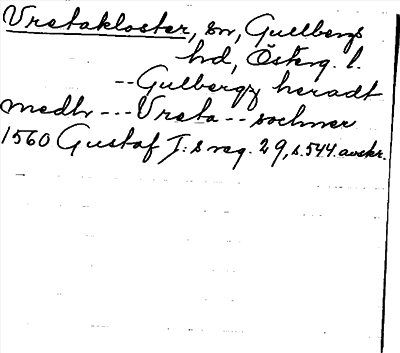 Vretakloster, sn, Gullbergs
hd, Österg. l.
-- Gulbergz heradt
medh --- Vreta -- sochner
1560 Gustaf I:s reg. 29, s. 544. avskr.